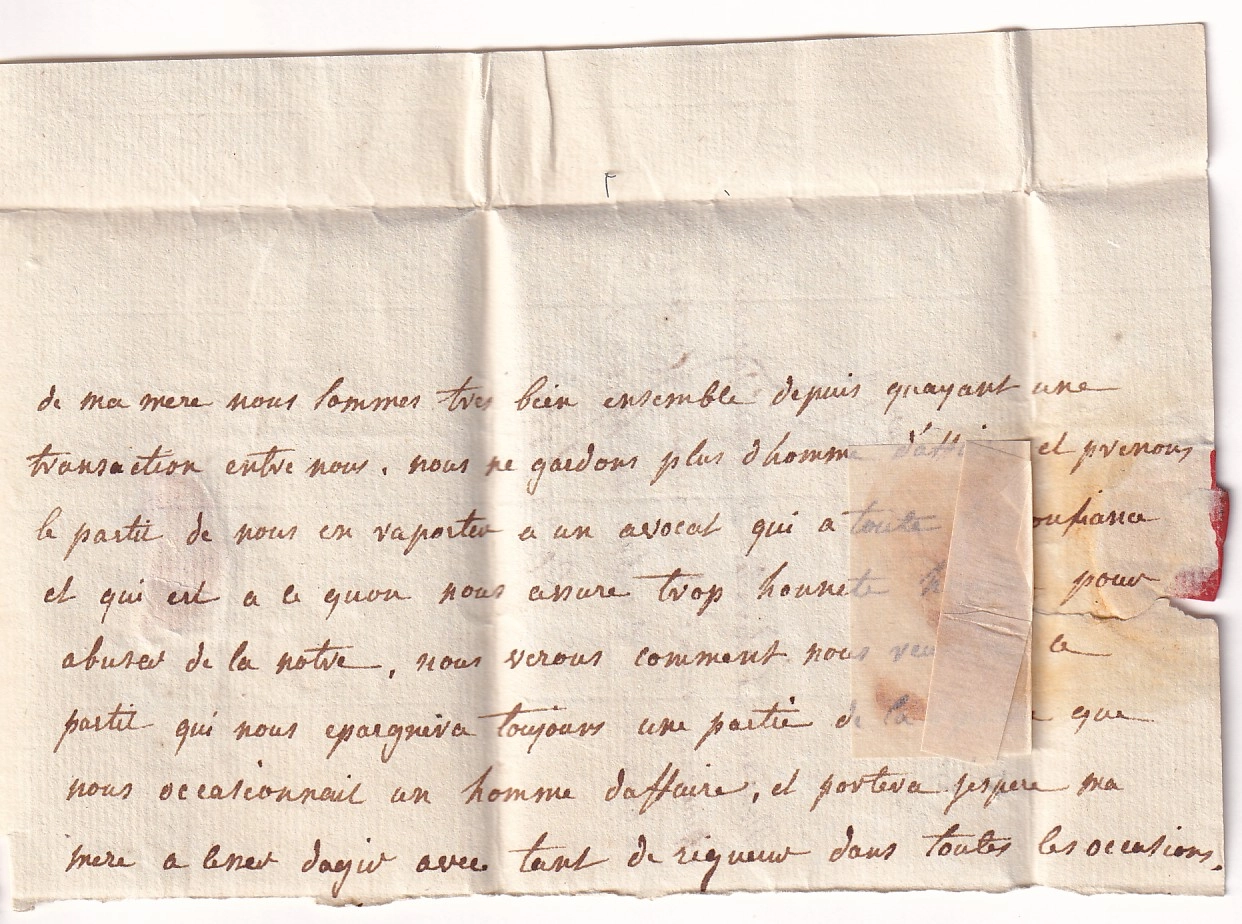 de ma mere nous sommes tres bien ensemble depuis quayant une
transaction entre nous. nous ne gardons plus d'homme et prenons
le parti de nous en raporter a un avocat qui a toute
et qui est a ce quon nous assure trop honnete pour
abuser de la notre, nous verons comment nous ce
parti qui nous epargnera toujours une partie de la que
nous occasionnait un homme daffaire, et portera jespere ma
mere a cesser dagir avec tant de rigueur dans toutes les occasions.